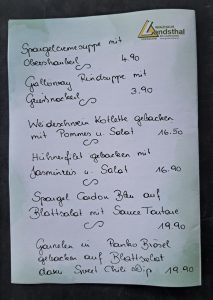 Landsthal
Spargelcremesuppe mit
Obershauberl 4.90
Galloway Rindsuppe mit
Grießnockerl 3.90
Weideschwein Kotlette gebacken
mit Pommes u. Salat 16.50
Hühnerfilet gebacken mit
Jasminreis u. Salat 16.90
Spargel Cordon Bleu auf
Blattsalat mit Sauce Tartare
19.90
Garnelen in Panko Brösel
gebacken auf Blattsalat
dazu Sweet Chili Dip 19.90